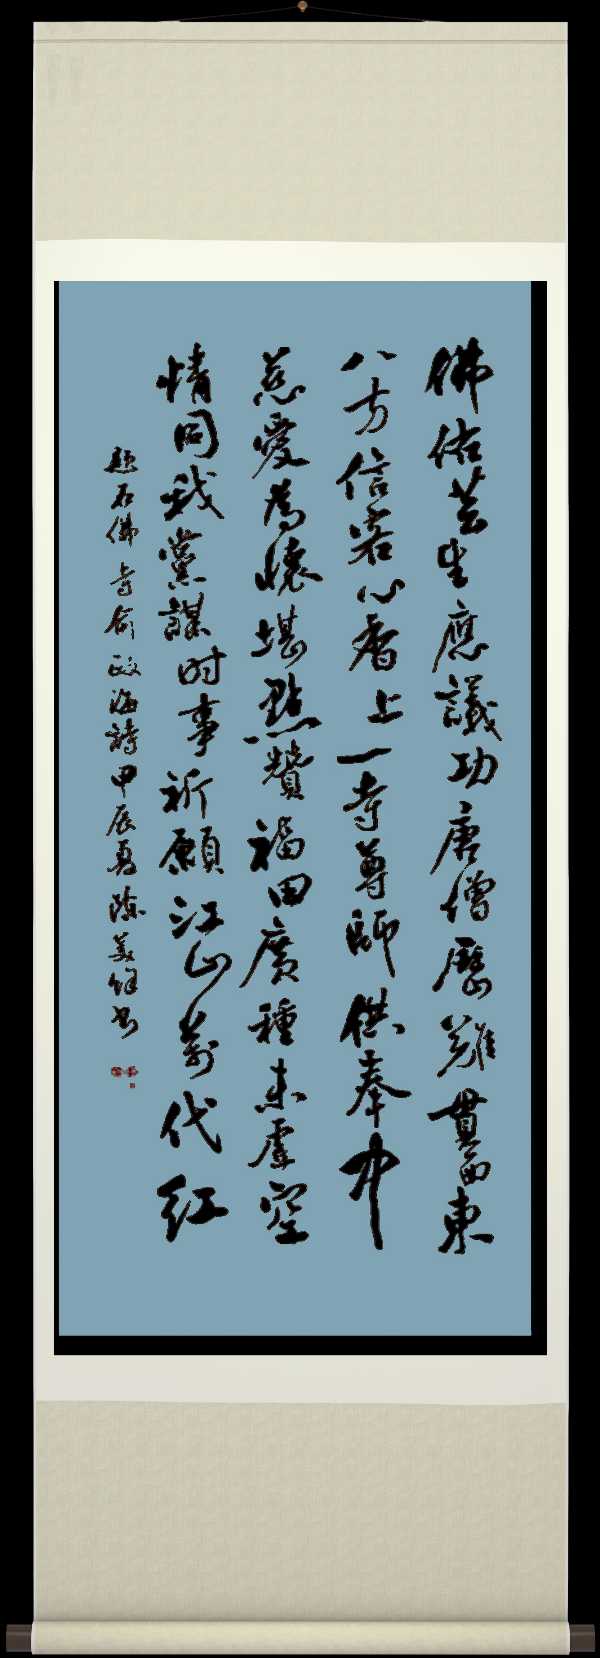 佛佑芸生應議功唐僧歷難貫西東
八方信客心香上一寺尊師供奉中
慈愛為懷堪點贊福田廣種未虛空
情同我黨謀时事祈願江山萬代紅
題石佛寺俞政海詩甲辰夏陳美书